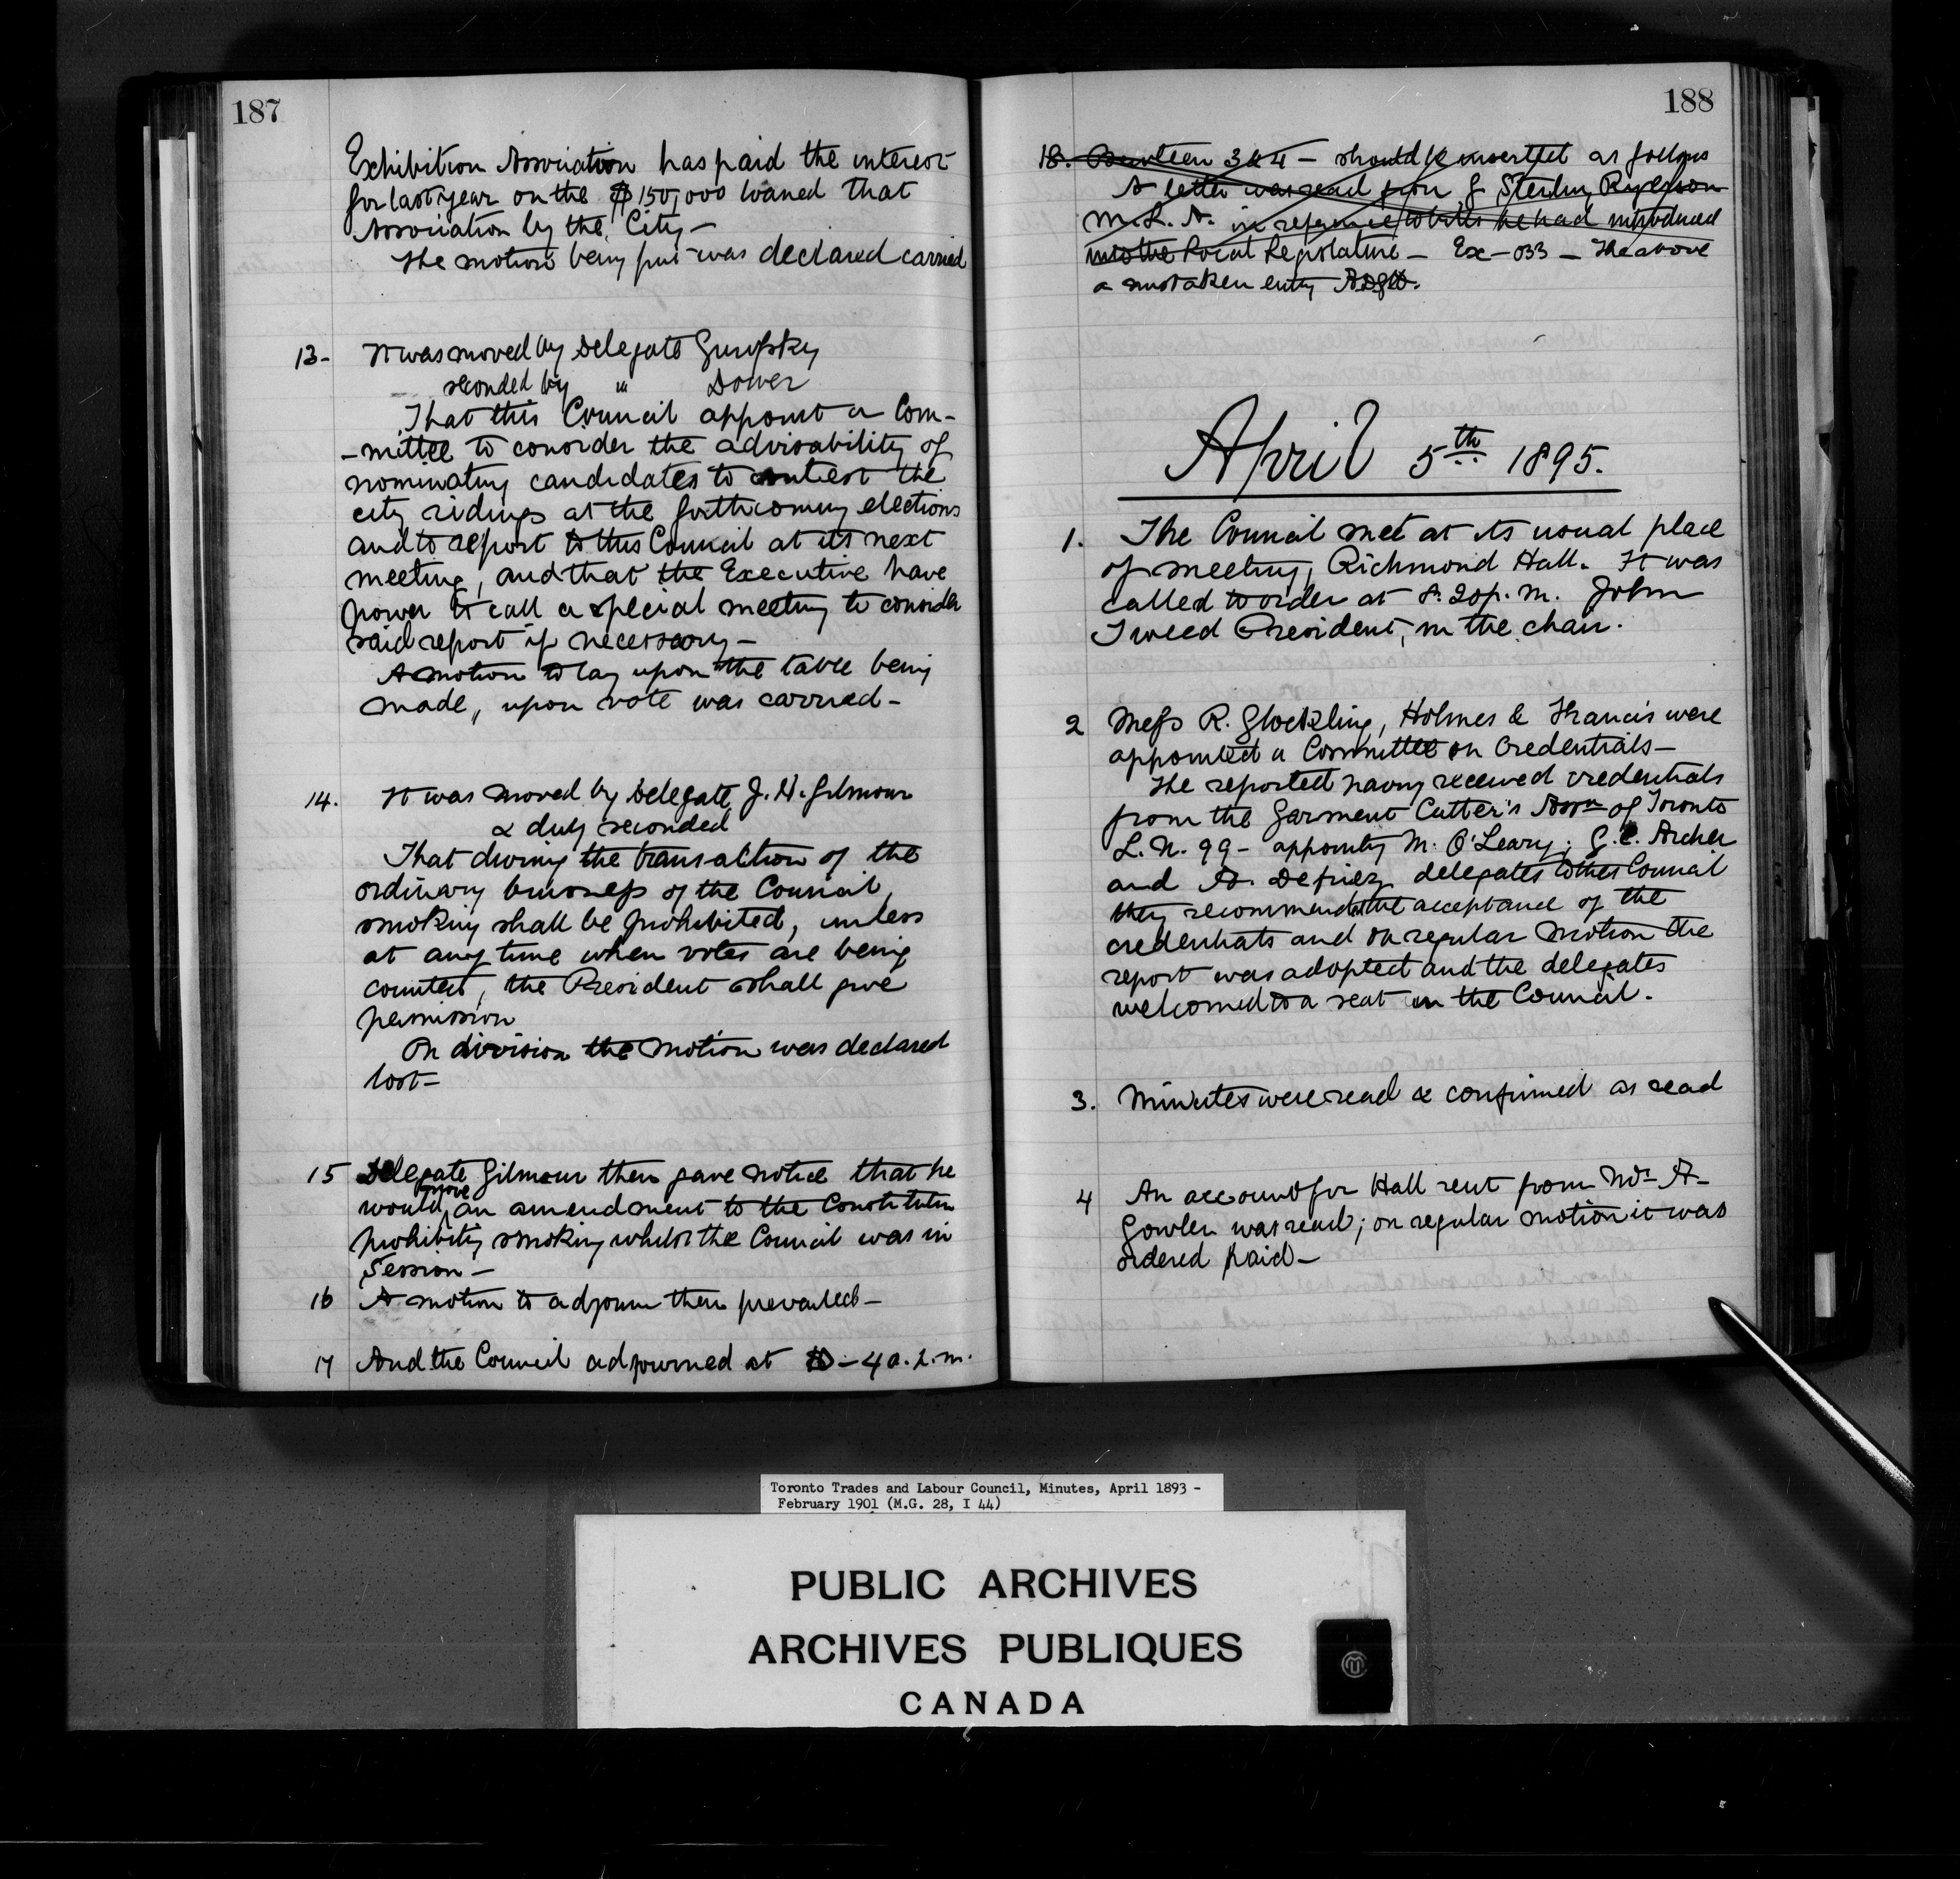 187
Exhibition Association has paid the interest
for last year on the $150,000 loaned that
Association by the City—
The motion being put was declared carried
13- It was moved by Delegate Gurofsky
seconded by " Dower
That this Council appoint a Com-
-mittee to consider the advisability of
nominating candidates to contest the
city ridings at the forthcoming elections
and to report to this Council at its next
meeting, and that the Executive have
power to call a special meeting to consider
said report if necessary—
A motion to lay upon the table being
made, upon vote was carried—
14. It was moved by Delegate J. H. Gilmour
& duly seconded
That during the transaction of the
ordinary business of the Council,
smoking shall be prohibited, unless
at any time when votes are being
counted, the President shall give
permission
On division the motion was declared
lost—
15 Delegate Gilmour then gave notice that he
would move an amendment to the Constitution
prohibiting smoking whilst the Council was in
Session—
16 A motion to adjourn then prevailed—
17 And the Council adjourned at 10-40. p.m.
188
18. Between 3 & 4 — should be inserted as follows
A letter was read from G Sterling Ryerson
M.L.A. in reference to bills he had introduced
into the Local Legislature — Ex — 033 — The above
a mistaken entry
April 5th 1895.
1. The Council met at its usual place
of meeting, Richmond Hall. It was
called to order at 8.20 p.m. John
Tweed President, in the chair.
2 Mess R. Glockling, Holmes & Francis were
appointed a Committee on Credentials—
The reported having received credentials
from the Garment Cutter's Assn of Toronto
L.N. 99— appointing M. O'Leary; G.E. Archer
and A. delegates to this Council
they recommended the acceptance of the
credentials and on regular motion the
report was adopted and the delegates
welcomed to a seat in the Council.
3. Minutes were read & confirmed as read
4 An account for Hall rent from Mr A—
Gowler was read; on regular motion it was
ordered paid—
Toronto Trades and Labour Council, Minutes, April 1893 -
February 1901 (M.G. 28, I 44)
PUBLIC ARCHIVES
ARCHIVES PUBLIQUES
CANADA